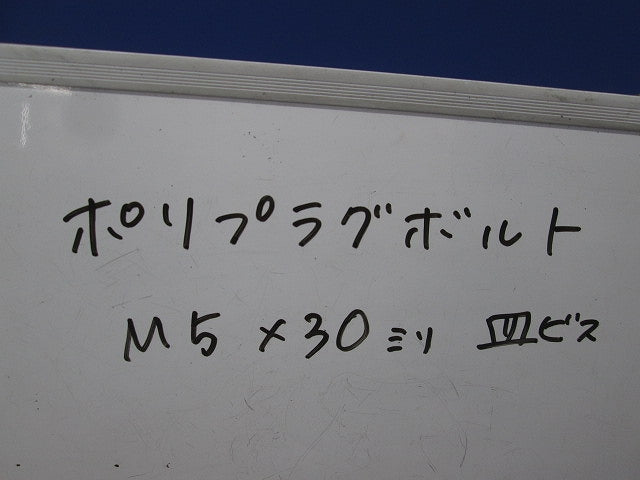 ポリプラグボルト
M5×30ミリ 皿ビス